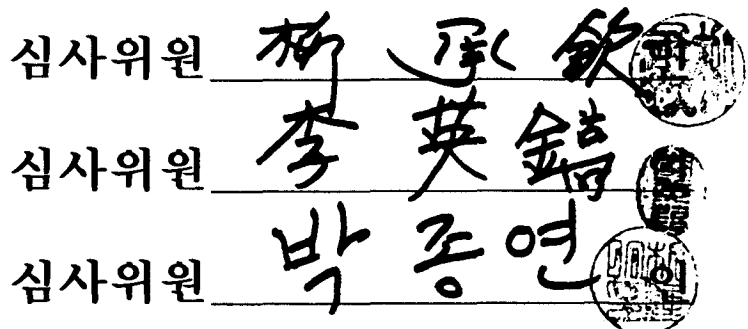 심사위원 柳 承 欽
심사위원 李 英 鎬
심사위원 박 종 연